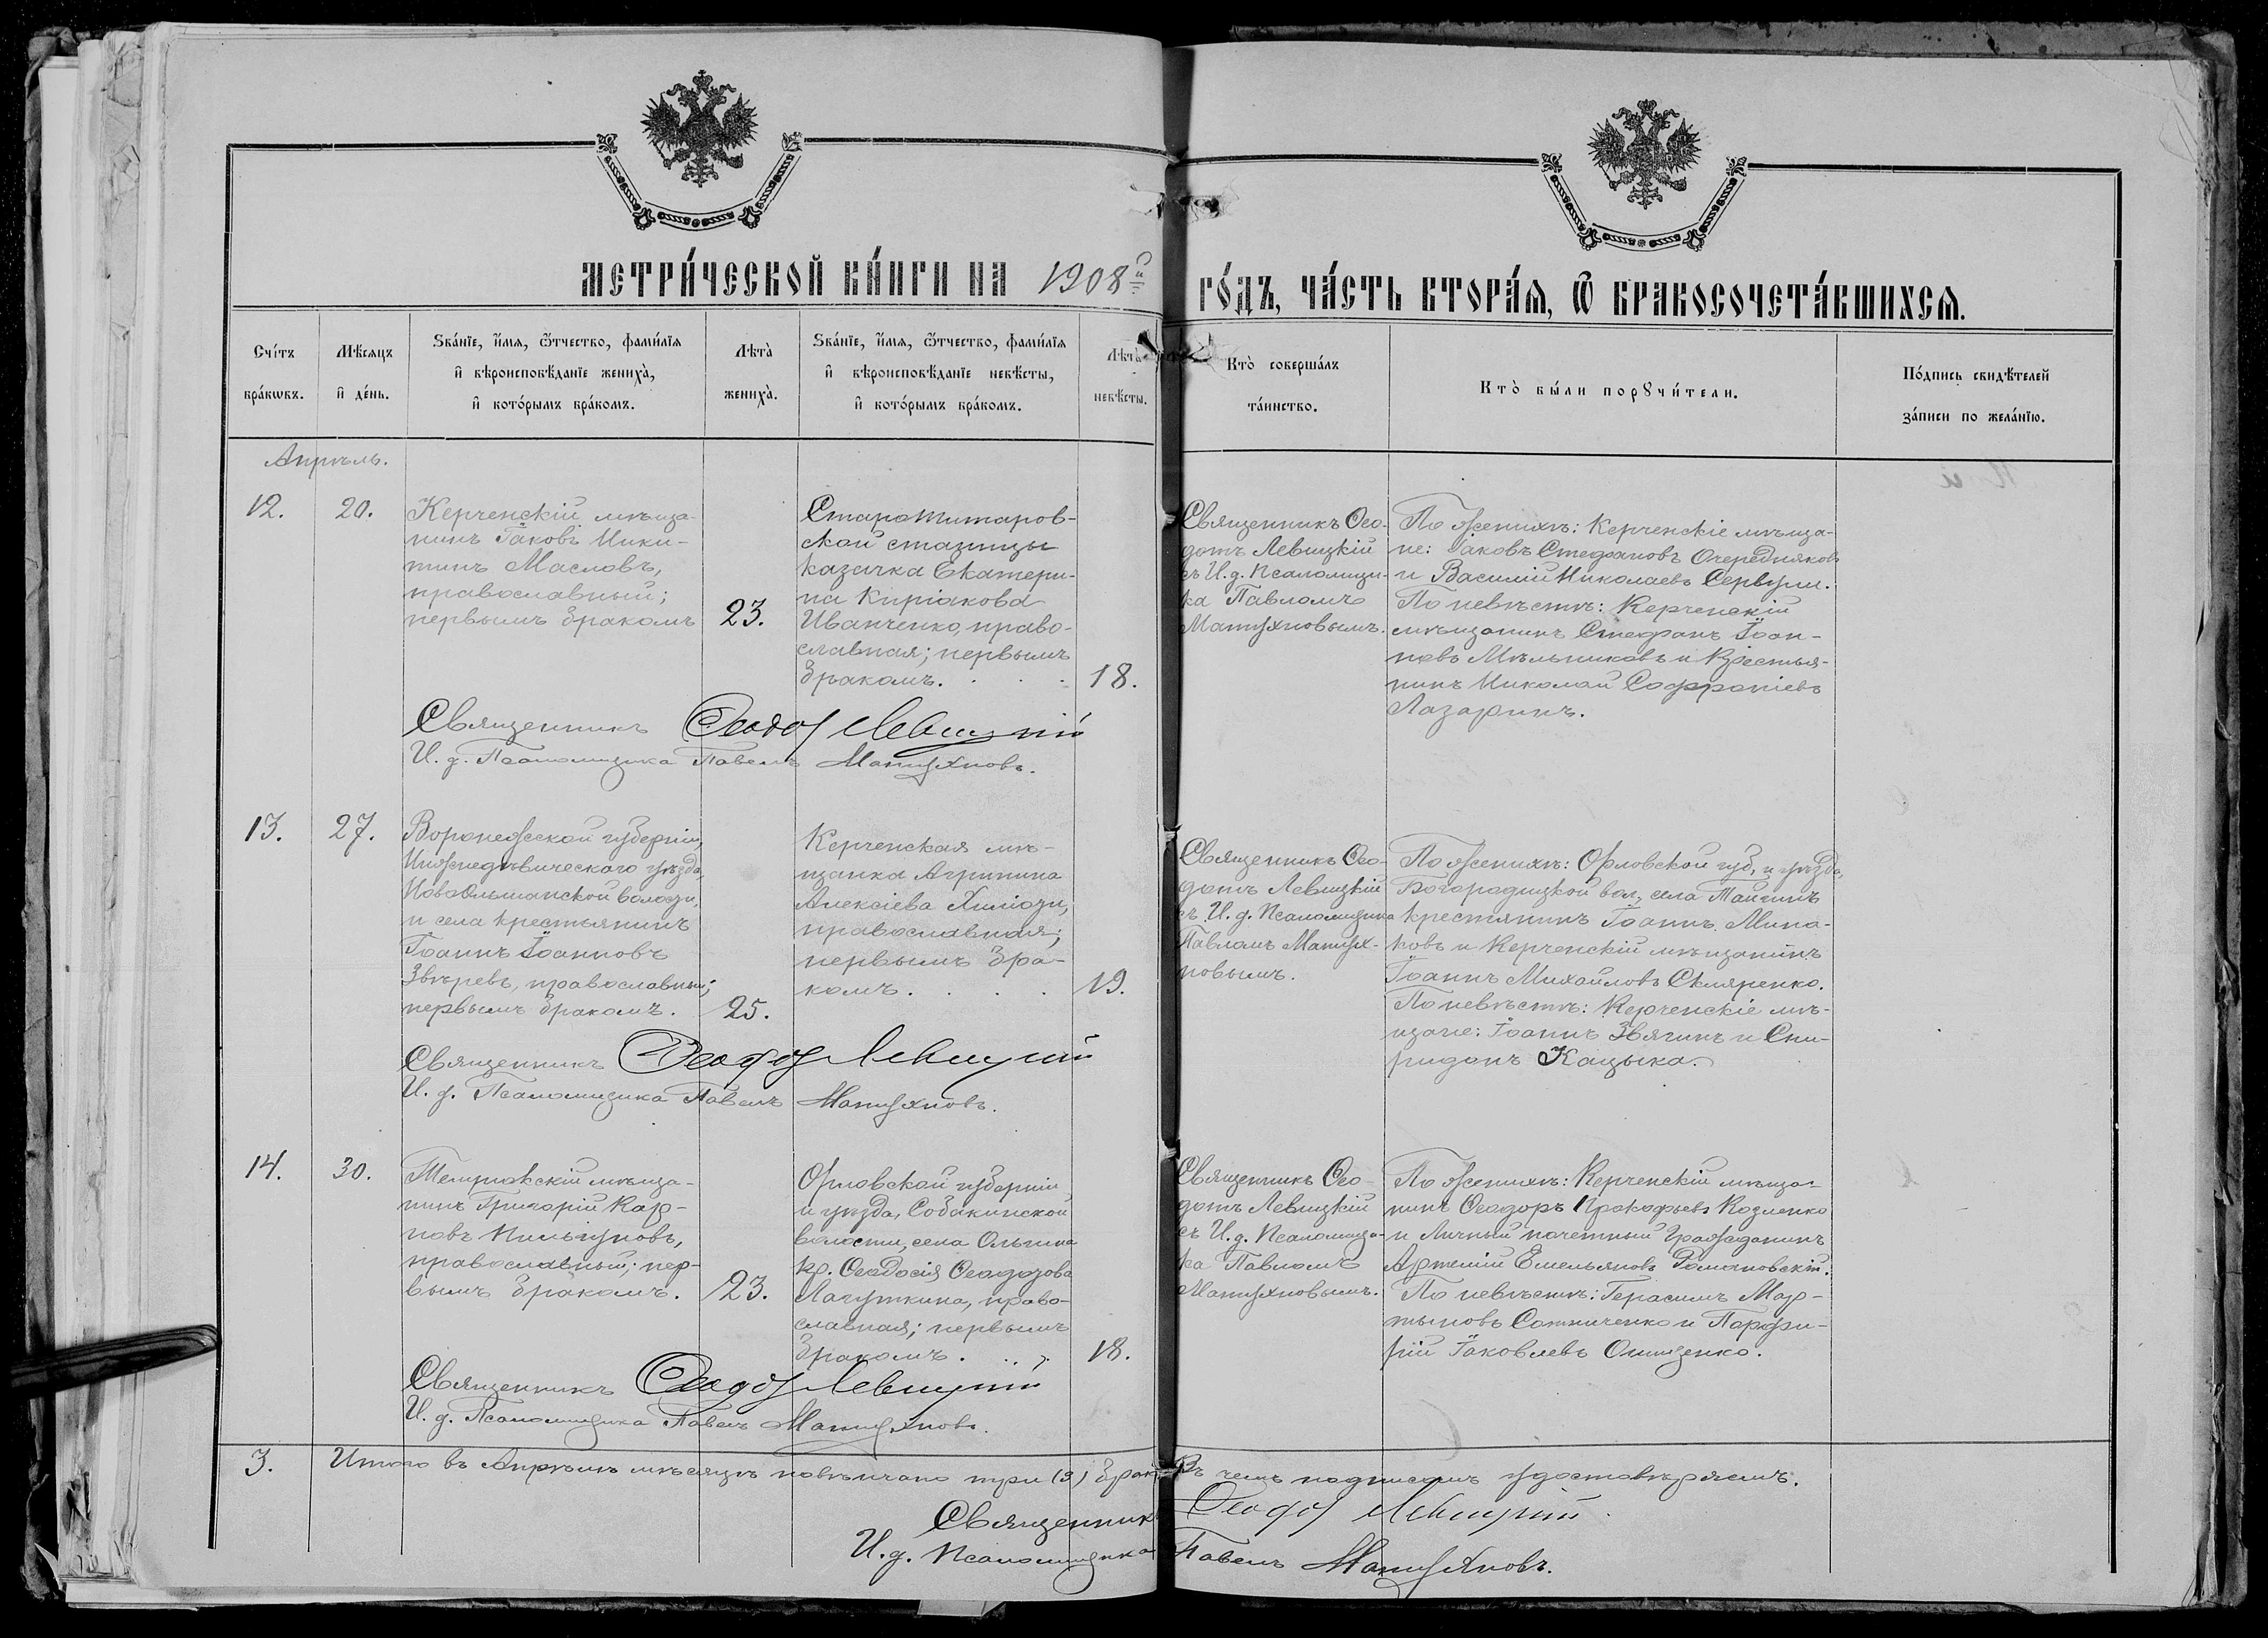 МЕТРИ́ЧЕСКОЙ КНИ́ГИ НА 1908й ГО́ДЪ, ЧА́СТЬ ВТОРА́Ѧ, Ѿ БРАКОСОЧЕТА́ВШИХСѦ.
Сче́тъ бра́кѡвъ.
Мѣ́сяцъ и де́нь.
Ѕва́нїе, и́мѧ, ѻ́тчество, фами́лїѧ
и вѣроисповѣ́данїе жениха̀,
и кото́рымъ бра́комъ.
Лѣта̀
жениха̀.
Ѕва́нїе, и́мѧ, ѻ́тчество, фами́лїѧ
и вѣроисповѣ́данїе невѣ́сты,
и кото́рымъ бра́комъ.
Лѣта̀
невѣ́сты.
Кто̀ соверша́лъ
та́инство.
Кто̀ бы́ли порꙋчи́тели.
По́дпись свидѣ́телей
за́писи по жела́нїю.
Апрѣль.
12.
20.
Керченскій мѣща-
нинъ Іаковъ Ники-
тинъ Масловъ,
православный;
первымъ бракомъ
23.
Старотитаров-
ской станицы
казачка Екатери-
на Киріакова
Иванченко, право-
славная; первымъ
бракомъ.
18.
Священникъ Ѳео-
дотъ Левицкій
съ И. д. Псаломщи-
ка Павломъ
Матухновымъ.
По женихѣ: Керченскіе мѣща-
не: Іаковъ Стефановъ Очередняковъ
и Василій Николаевъ Сервули.
По невѣстѣ: Керченскій
мѣщанинъ Стефанъ Іоан-
новъ Мѣльниковъ и Крестья-
нинъ Николай Софроніевъ
Лазаринъ.
Священникъ Ѳеодот Левицкій
И. д. Псаломщика Павелъ Матухновъ.
13.
27.
Воронежской губерніи,
Нижнедѣвическаго уѣзда,
Новоольшанской волости,
и села крестьянинъ
Іоаннъ Іоанновъ
Звѣревъ, православный;
первымъ бракомъ.
25.
Керченская мѣ-
щанка Агрипина
Алексіева Хиліози,
православная;
первымъ бра-
комъ.
19.
Священникъ Ѳео-
дотъ Левицкій
съ И. д. Псаломщика
Павломъ Матух-
новымъ.
По женихѣ: Орловской губ, и уѣзда,
Богородицкой вол, села
крестянинъ Іоаннъ Мина-
ковъ и Керченскій мѣщанинъ
Іоаннъ Михайловъ Скляренко.
По невѣстѣ: Керченскіе мѣ-
щане: Іоаннъ Звягинъ и Спи-
ридонъ Кацыка.
Священникъ Ѳеодот Левицкій
И. д. Псаломщика Павелъ Матухновъ.
14.
30.
Темрюкскій мѣща-
нинъ Григорій Кар-
повъ Пильгуновъ,
православный; пер-
вымъ бракомъ.
23.
Орловской губерніи
и уѣзда, Собакинской
волости, села Ольгина
кр. Ѳеодосія Ѳеодорова
Лагуткина, право-
славная; первымъ
бракомъ.
18.
Священникъ Ѳео-
дотъ Левицкій
съ И. д. Псаломщи-
ка Павломъ
Матухновымъ.
По женихѣ: Керченскій мѣща-
нинъ Ѳеодоръ Прокофьевъ Козленко
и Личный почетный Гражданинъ
Артемій Емельяновъ Романовскій.
По невѣстѣ: Герасимъ Мар-
тыновъ Сотниченко и Порфи-
рій Іаковлевъ Онищенко.
Священникъ Ѳеодот Левицкій
И. д. Псаломщика Павелъ Матухновъ.
3. Итого въ Апрѣлѣ мѣсяцѣ повѣнчано три (3) брака Въ чемъ подписомъ удостовѣряемъ.
Священникъ Ѳеодот Левицкій.
И. д. Псаломщика Павелъ Матухновъ.